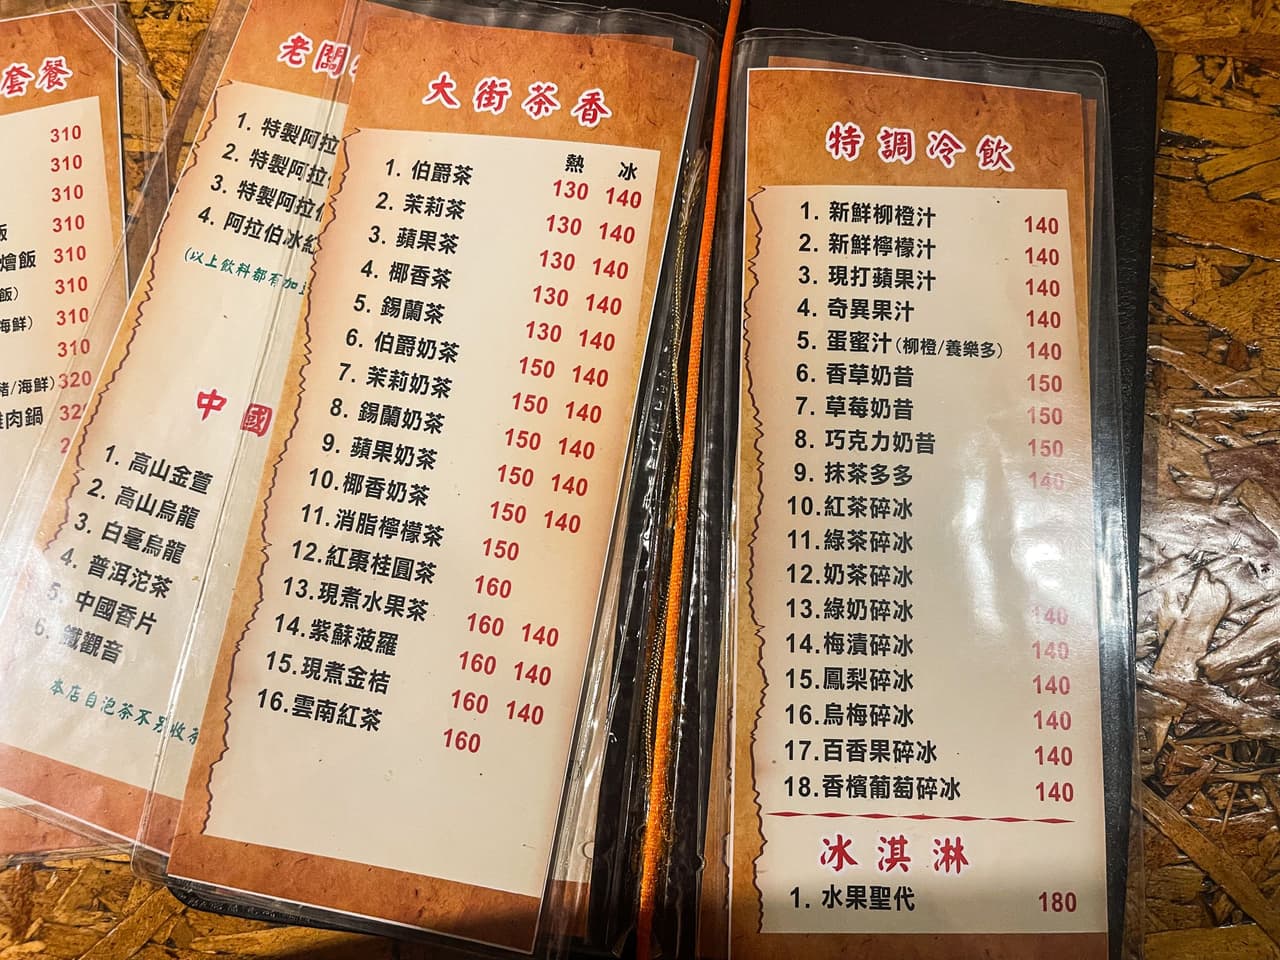 套餐
310
310
310
飯 310
燴飯 310
飯) 310
海鮮) 310
310
豬/海鮮) 320
肉鍋 32
2
老闆
1. 特製阿拉
2. 特製阿拉
3. 特製阿拉
4. 阿拉伯冰紅
(以上飲料都有加
中國
1. 高山金萱
2. 高山烏龍
3. 白毫烏龍
4. 普洱沱茶
5. 中國香片
6. 鐵觀音
本店自泡茶不另收茶
大街茶香
熱 冰
1. 伯爵茶 130 140
2. 茉莉茶 130 140
3. 蘋果茶 130 140
4. 椰香茶 130 140
5. 錫蘭茶 130 140
6. 伯爵奶茶 150 140
7. 茉莉奶茶 150 140
8. 錫蘭奶茶 150 140
9. 蘋果奶茶 150 140
10. 椰香奶茶 150 140
11. 消脂檸檬茶 150
12. 紅棗桂圓茶 160
13. 現煮水果茶 160 140
14. 紫蘇菠羅 160 140
15. 現煮金桔 160 140
16. 雲南紅茶 160
特調冷飲
1. 新鮮柳橙汁 140
2. 新鮮檸檬汁 140
3. 現打蘋果汁 140
4. 奇異果汁 140
5. 蛋蜜汁(柳橙/養樂多) 140
6. 香草奶昔 150
7. 草莓奶昔 150
8. 巧克力奶昔 150
9. 抹茶多多 140
10. 紅茶碎冰
11. 綠茶碎冰
12. 奶茶碎冰
13. 綠奶碎冰 140
14. 梅漬碎冰 140
15. 鳳梨碎冰 140
16. 烏梅碎冰 140
17. 百香果碎冰 140
18. 香檳葡萄碎冰 140
冰淇淋
1. 水果聖代 180